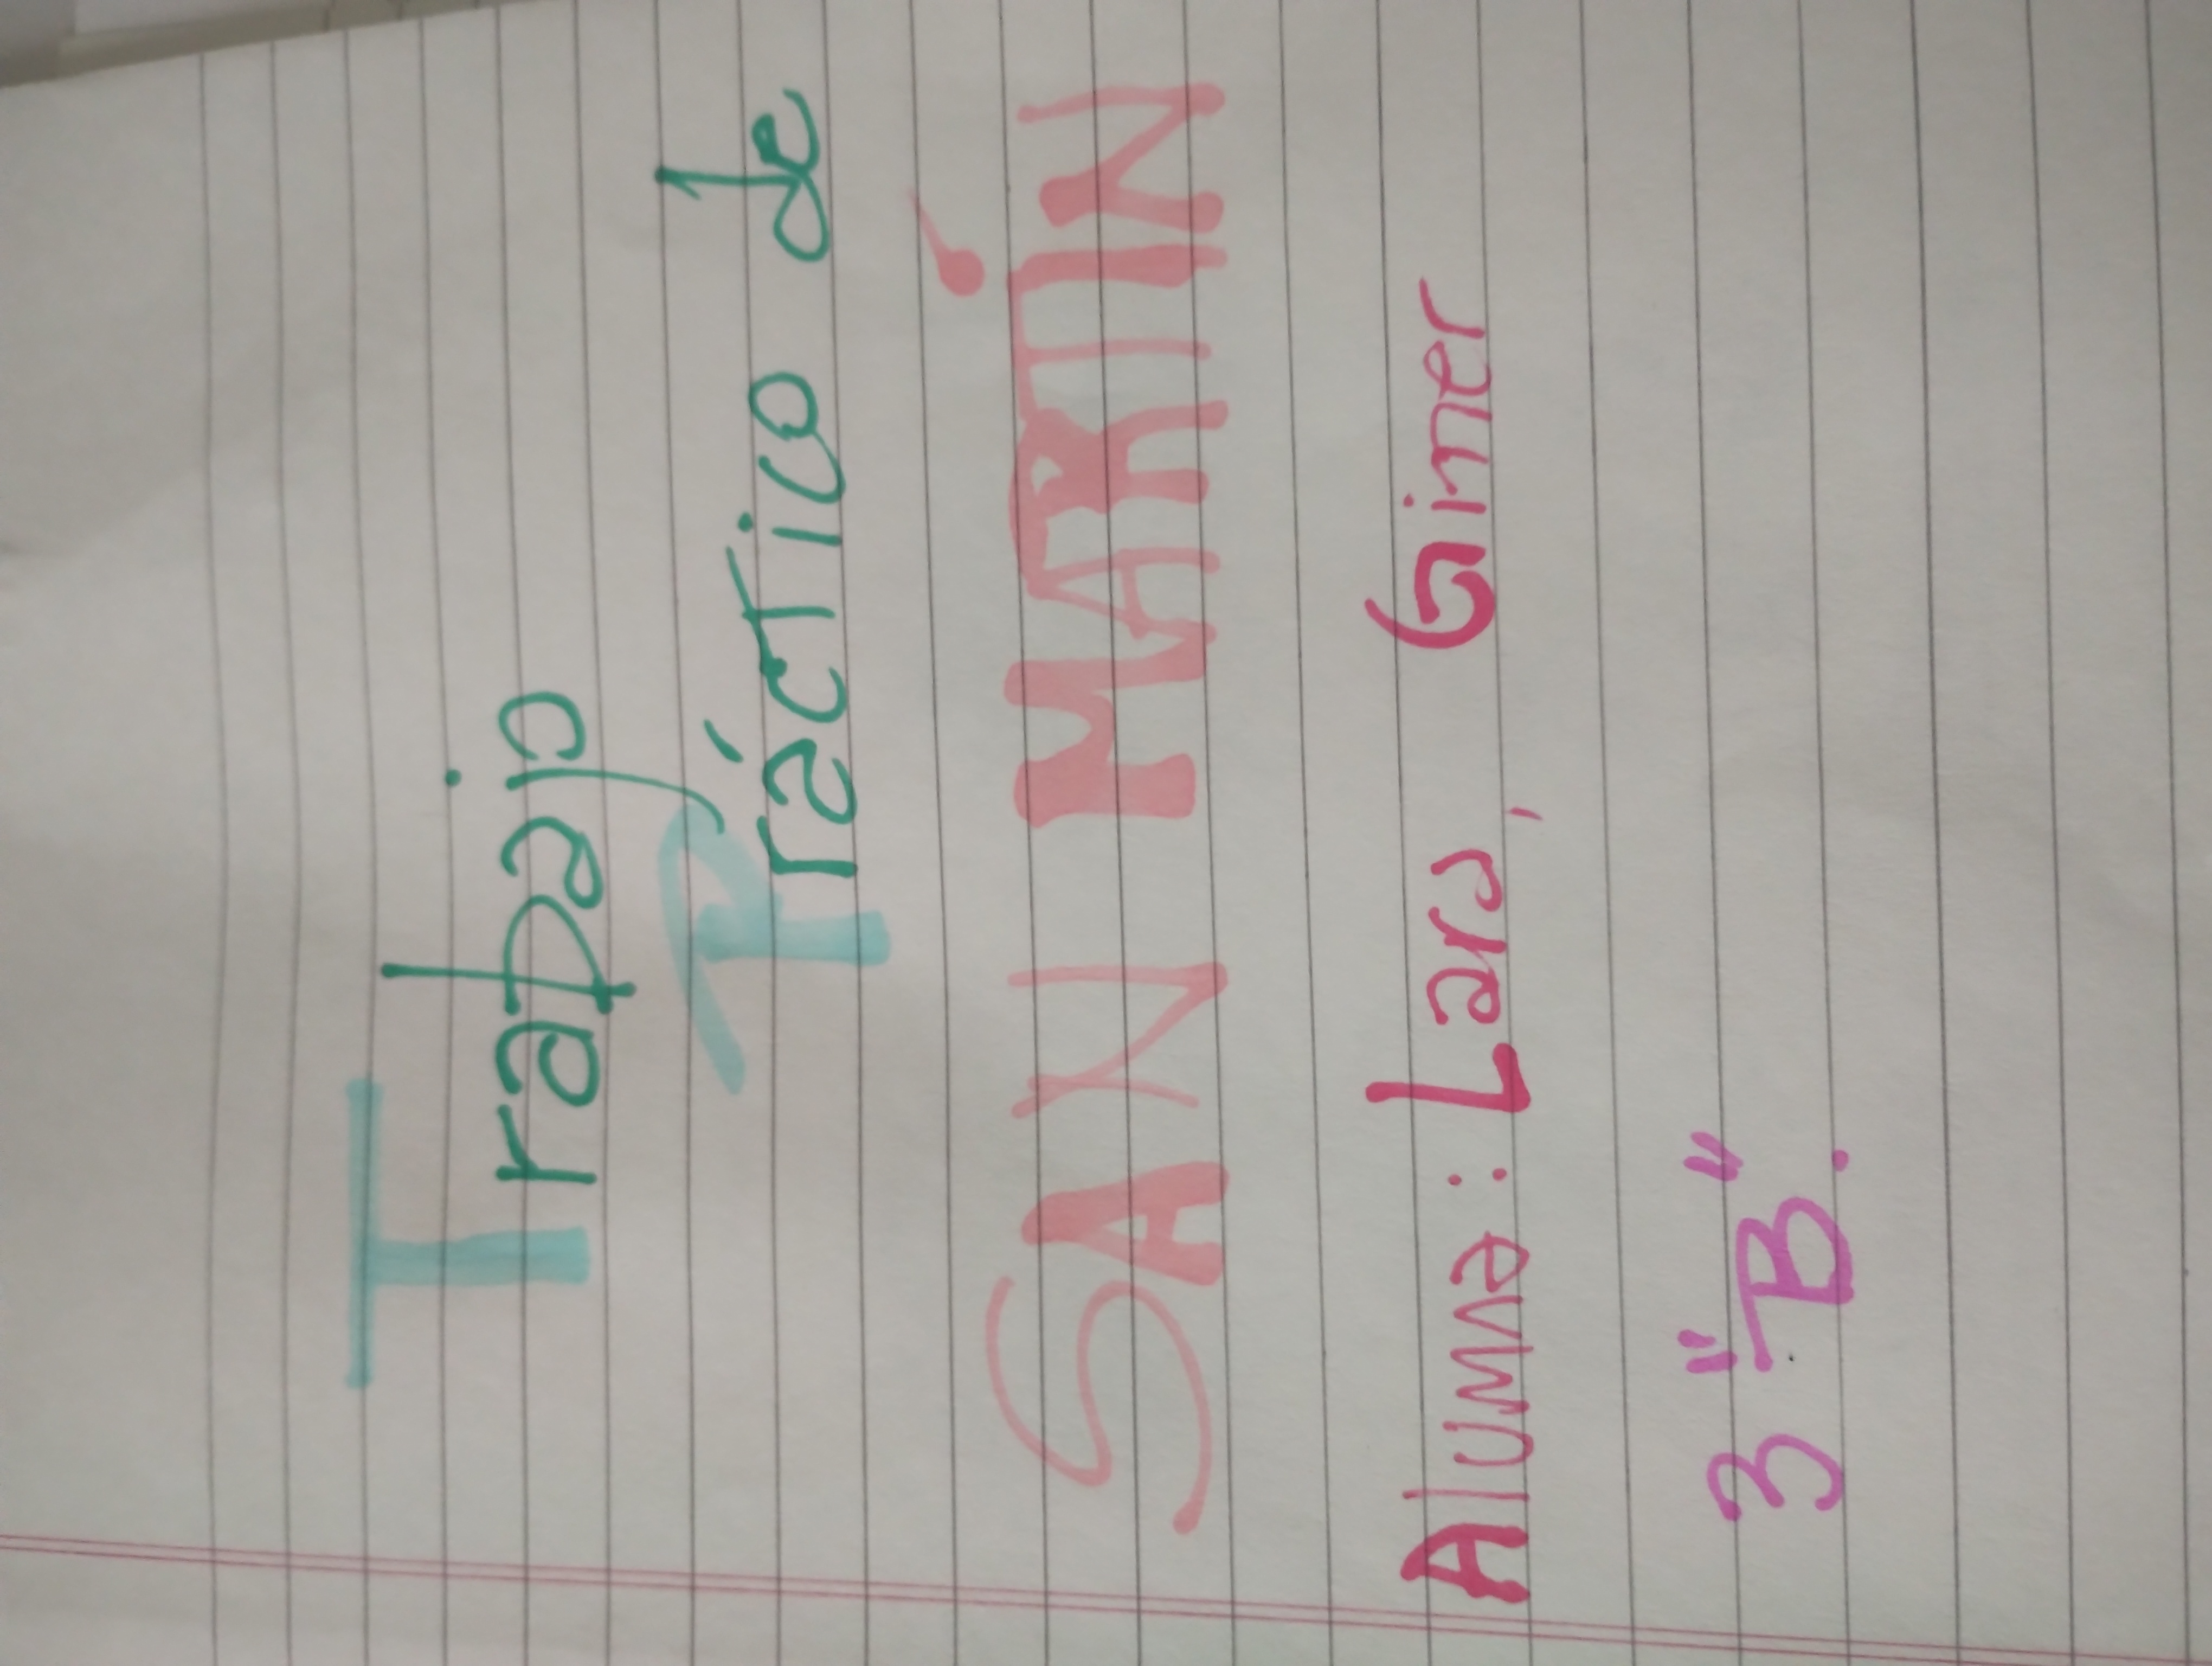 Trabajo
Práctico de
SAN MARTÍN
Alumna: Lara, Giner
3 "B".